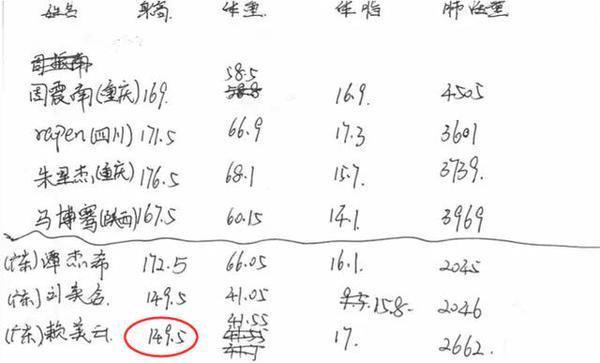 姓名 身高 体重 体脂 肺活量
周振南 58.5
周震南(重庆) 169. 16.9 4505
rapen(四川) 171.5 66.9 17.3 3601
朱星杰(重庆) 176.5 68.1 15.7. 3739.
马博骞(陕西) 167.5 60.15 14.1 3969
(广东)谭杰希 172.5 66.05 16.1. 2045
(广东)刘美含 149.5 41.05 15.8. 2046
41.55
(广东)赖美云. 149.5 17. 2662.